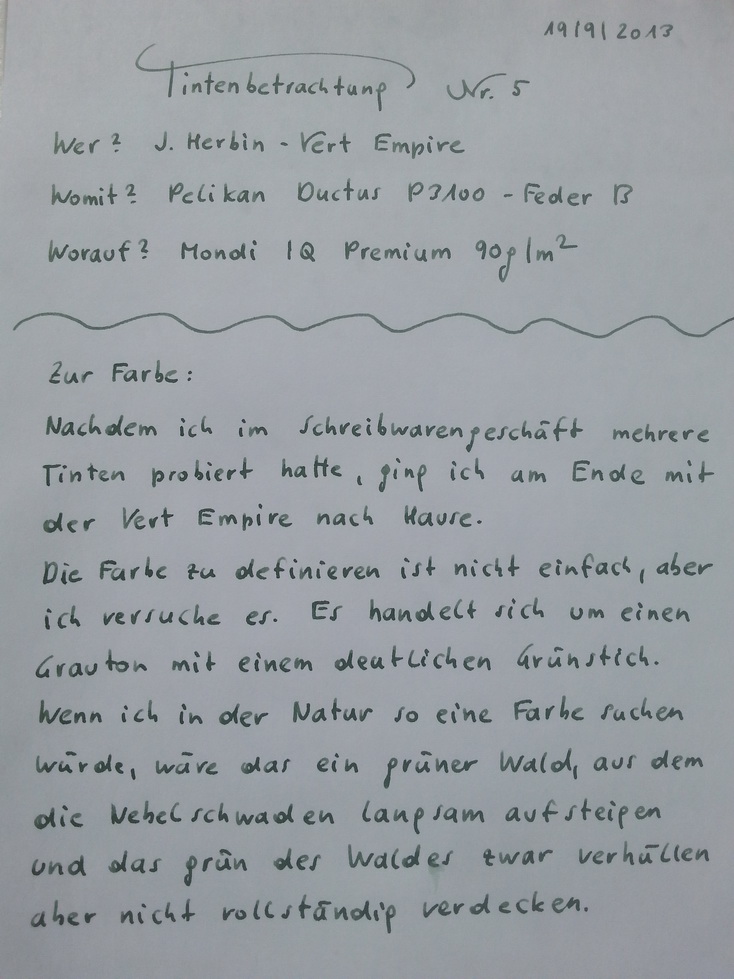 19/9/2013
Tintenbetrachtung Nr. 5
Wer? J. Herbin - Vert Empire
Womit? Pelikan Ductus P3100 - Feder B
Worauf? Mondi IQ Premium 90g/m²
Zur Farbe:
Nachdem ich im Schreibwarengeschäft mehrere
Tinten probiert hatte, ging ich am Ende mit
der Vert Empire nach Hause.
Die Farbe zu definieren ist nicht einfach, aber
ich versuche es. Es handelt sich um einen
Grauton mit einem deutlichen Grünstich.
Wenn ich in der Natur so eine Farbe suchen
würde, wäre das ein grüner Wald, aus dem
die Nebelschwaden langsam aufsteigen
und das grün des Waldes zwar verhüllen
aber nicht vollständig verdecken.